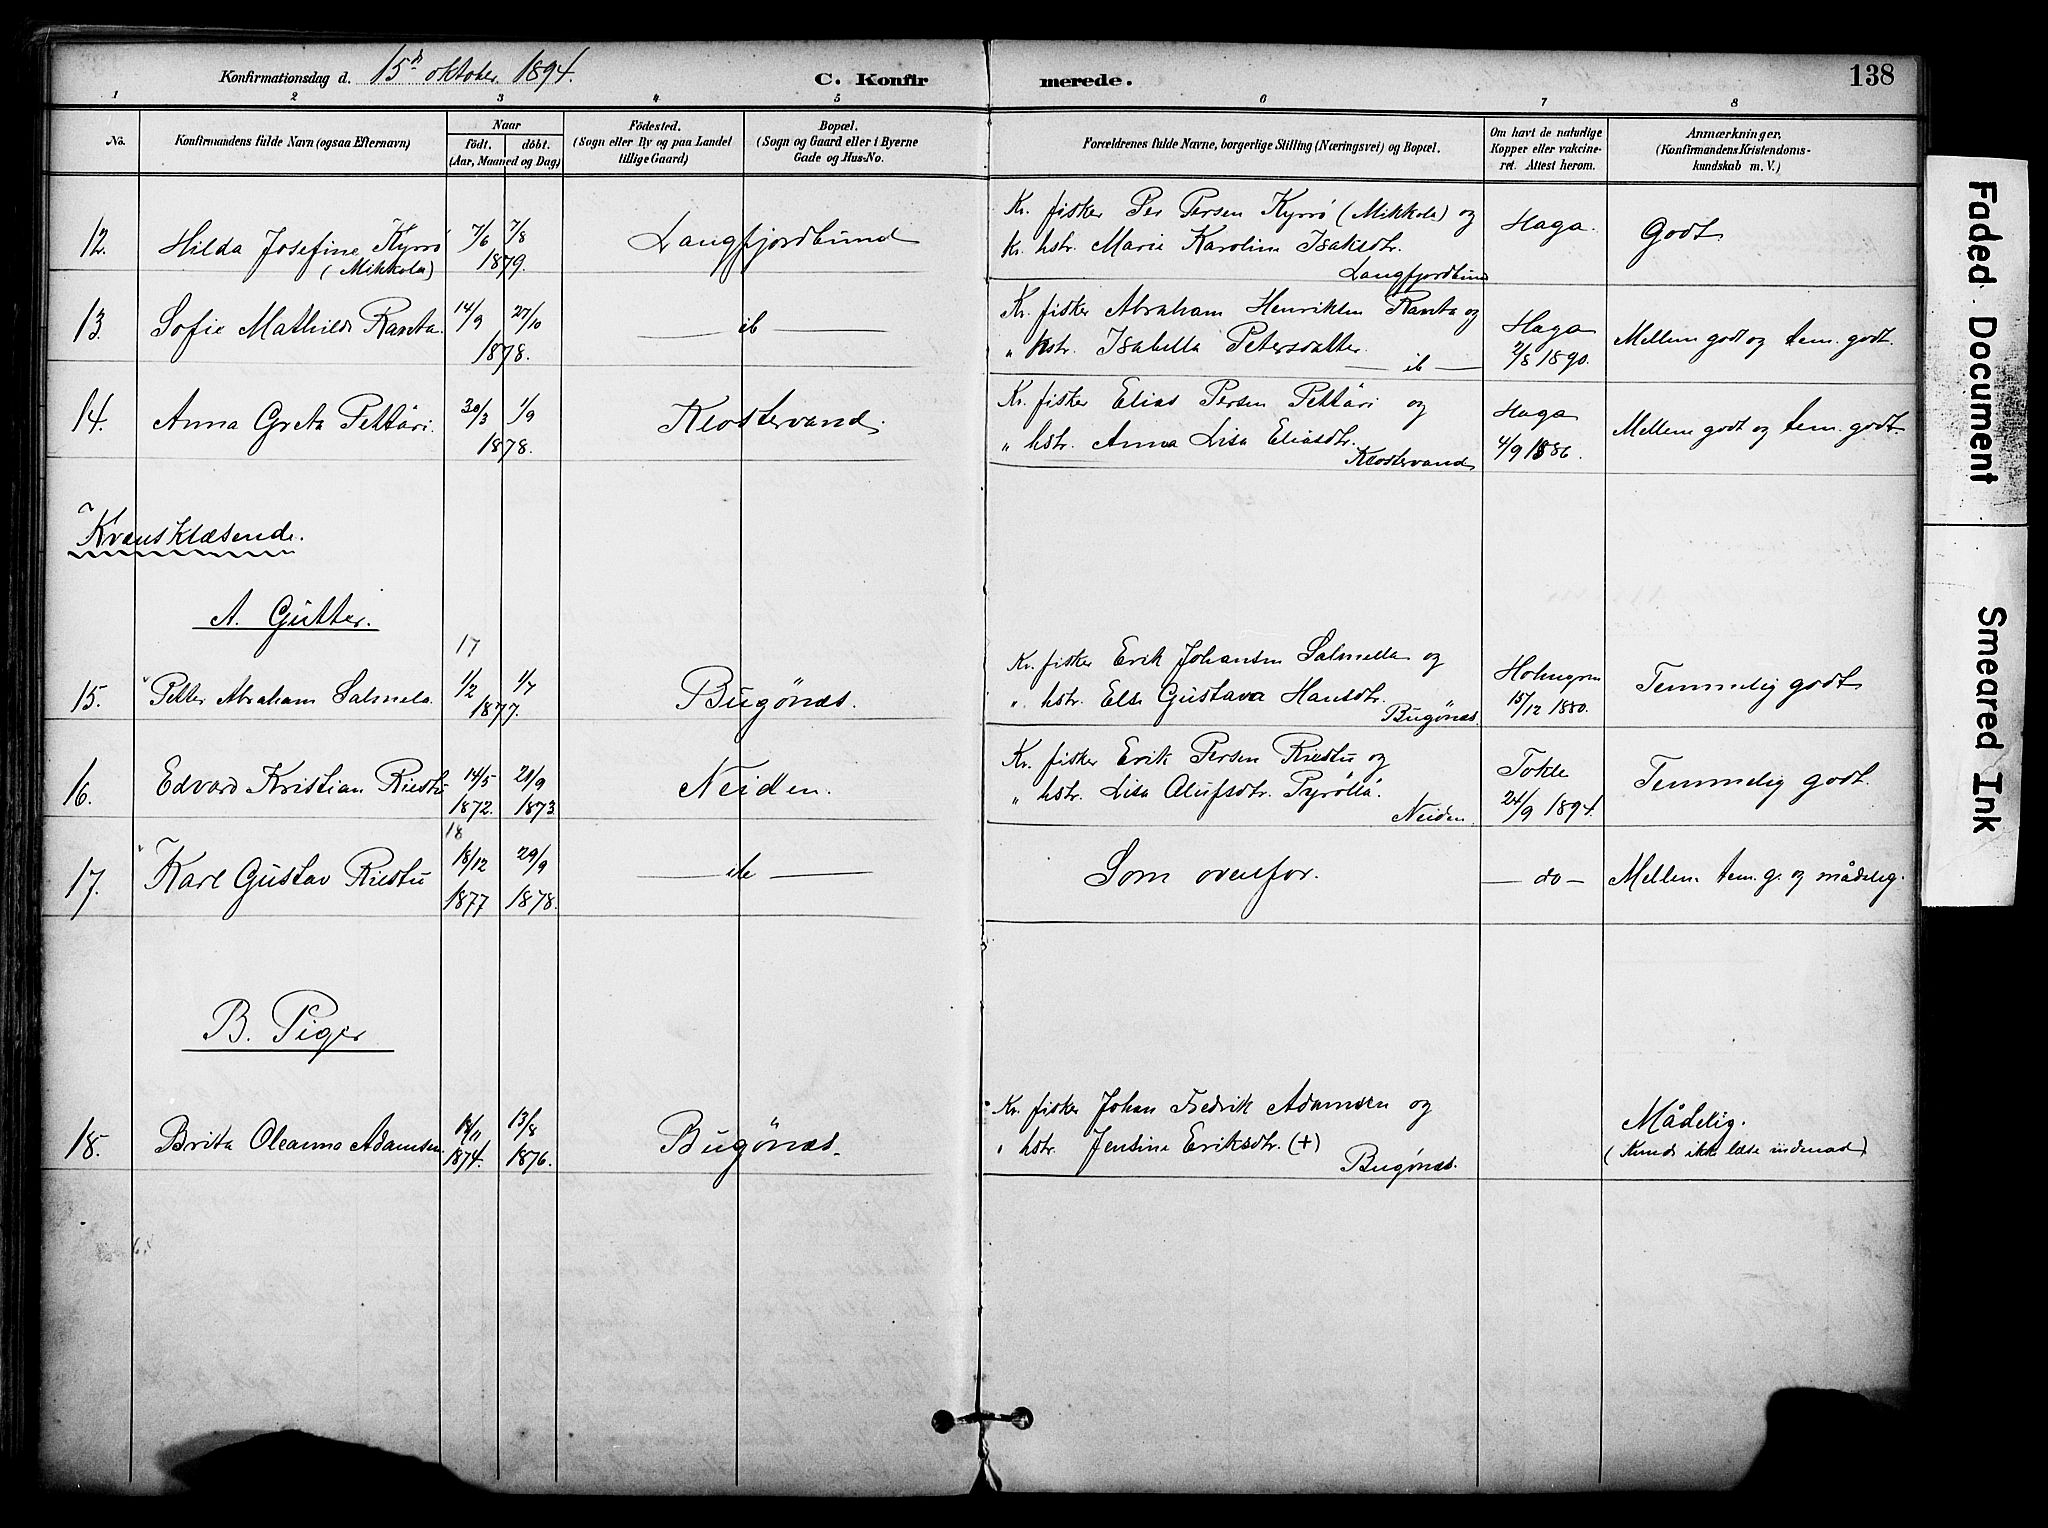 Konfirmationsdag d. 15de oktober 1894.
C. Konfir
merede.
138
1 2 3 4 5 6 7 8
No.
Konfirmandens fulde Navn (ogsaa Efternavn)
Naar
födt. döbt.
(Aar, Maaned og Dag)
Födested.
(Sogn eller By og paa Landet
tillige Gaard)
Bopæl.
(Sogn og Gaard eller i Byerne
Gade og Hus-No.
Forældrenes fulde Navne, borgerlige Stilling (Næringsvei) og Bopæl.
Om havt de naturlige
Kopper eller vakcine-
ret. Attest herom.
Anmærkninger.
(Konfirmandens Kristendoms-
kundskab m. V.)
12. Hilda Josefine Kyrrö
(Mikkola)
7/6 7/8
1879.
Langfjordbund
Kv. fisker Per Persen Kyrrö (Mikkola) og
kv. hstr. Marie Karolina Isaksdtr.
Langfjordbund
Haga.
Godt
13. Sofie Mathilde Ranta.
14/9 27/10
1878.
— ib —
Kv. fisker Abraham Henriksen Ranta og
" hstr. Isabella Petersdatter.
— ib —
Haga
2/8 1890.
Mellem godt og tem. godt.
14. Anna Greta Pettäri.
30/3 1/9
1878.
Klostervand.
Kv. fisker Elias Persen Pettäri og
" hstr. Anna Lisa Eliasdtr.
Klostervand
Haga
4/9 1886.
Mellem godt og tem. godt.
Kvænsklæsende.
A. Gutter.
17
15. Petter Abraham Salmela.
1/2 1/7
1877.
Bugönæs.
Kv. fisker Erik Johansen Salmella og
" hstr. Else Gustava Hansdtr.
Bugönæs.
Holmgren
15/12 1880.
Temmelig godt
16. Edvard Kristian Riestu
14/5 21/9
1872. 1873
Neiden.
Kv. fisker Erik Persen Riestu og
" hstr. Lisa Olufsdtr. Pyrölä.
Neiden.
Tokle
24/9 1894.
Temmelig godt.
18
17. Karl Gustav Riestu
18/12 29/9
1877 1878.
— ib —
Som ovenfor.
— do —
Mellem tem. g. og mådelig.
B. Piger
18. Britta Oleanna Adamsen.
18/11 13/8
1874. 1876.
Bugönæs.
Kv. fisker Johan Fredrik Adamsen og
" hstr. Jensine Eriksdtr. (+)
Bugönæs.
Mådelig.
(Kunde ikke læse indenad)
Faded Document
Smeared Ink